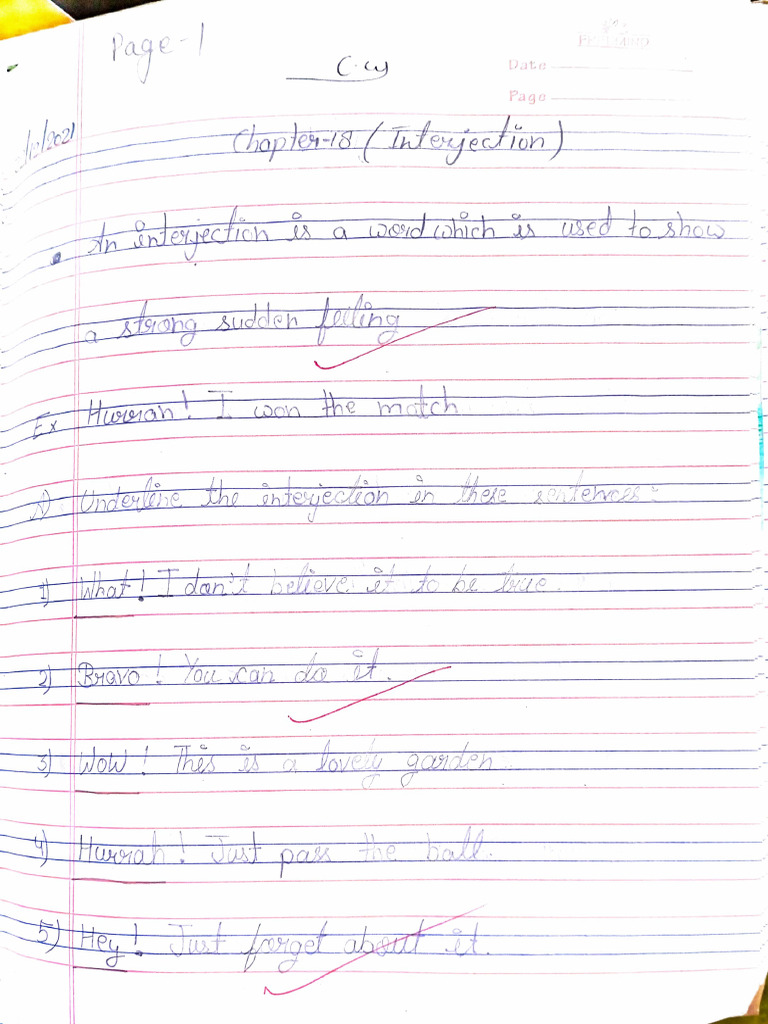 Page-1
C.W
Date
Page
/12/2021
Chapter-18 (Interjection)
• An interjection is a word which is used to show
a strong sudden feeling
Ex Hurrah! I won the match
A) Underline the interjection in these sentences:
1) What! I don't believe it to be true.
2) Bravo! You can do it.
3) Wow! This is a lovely garden.
4) Hurrah! Just pass the ball.
5) Hey! Just forget about it.